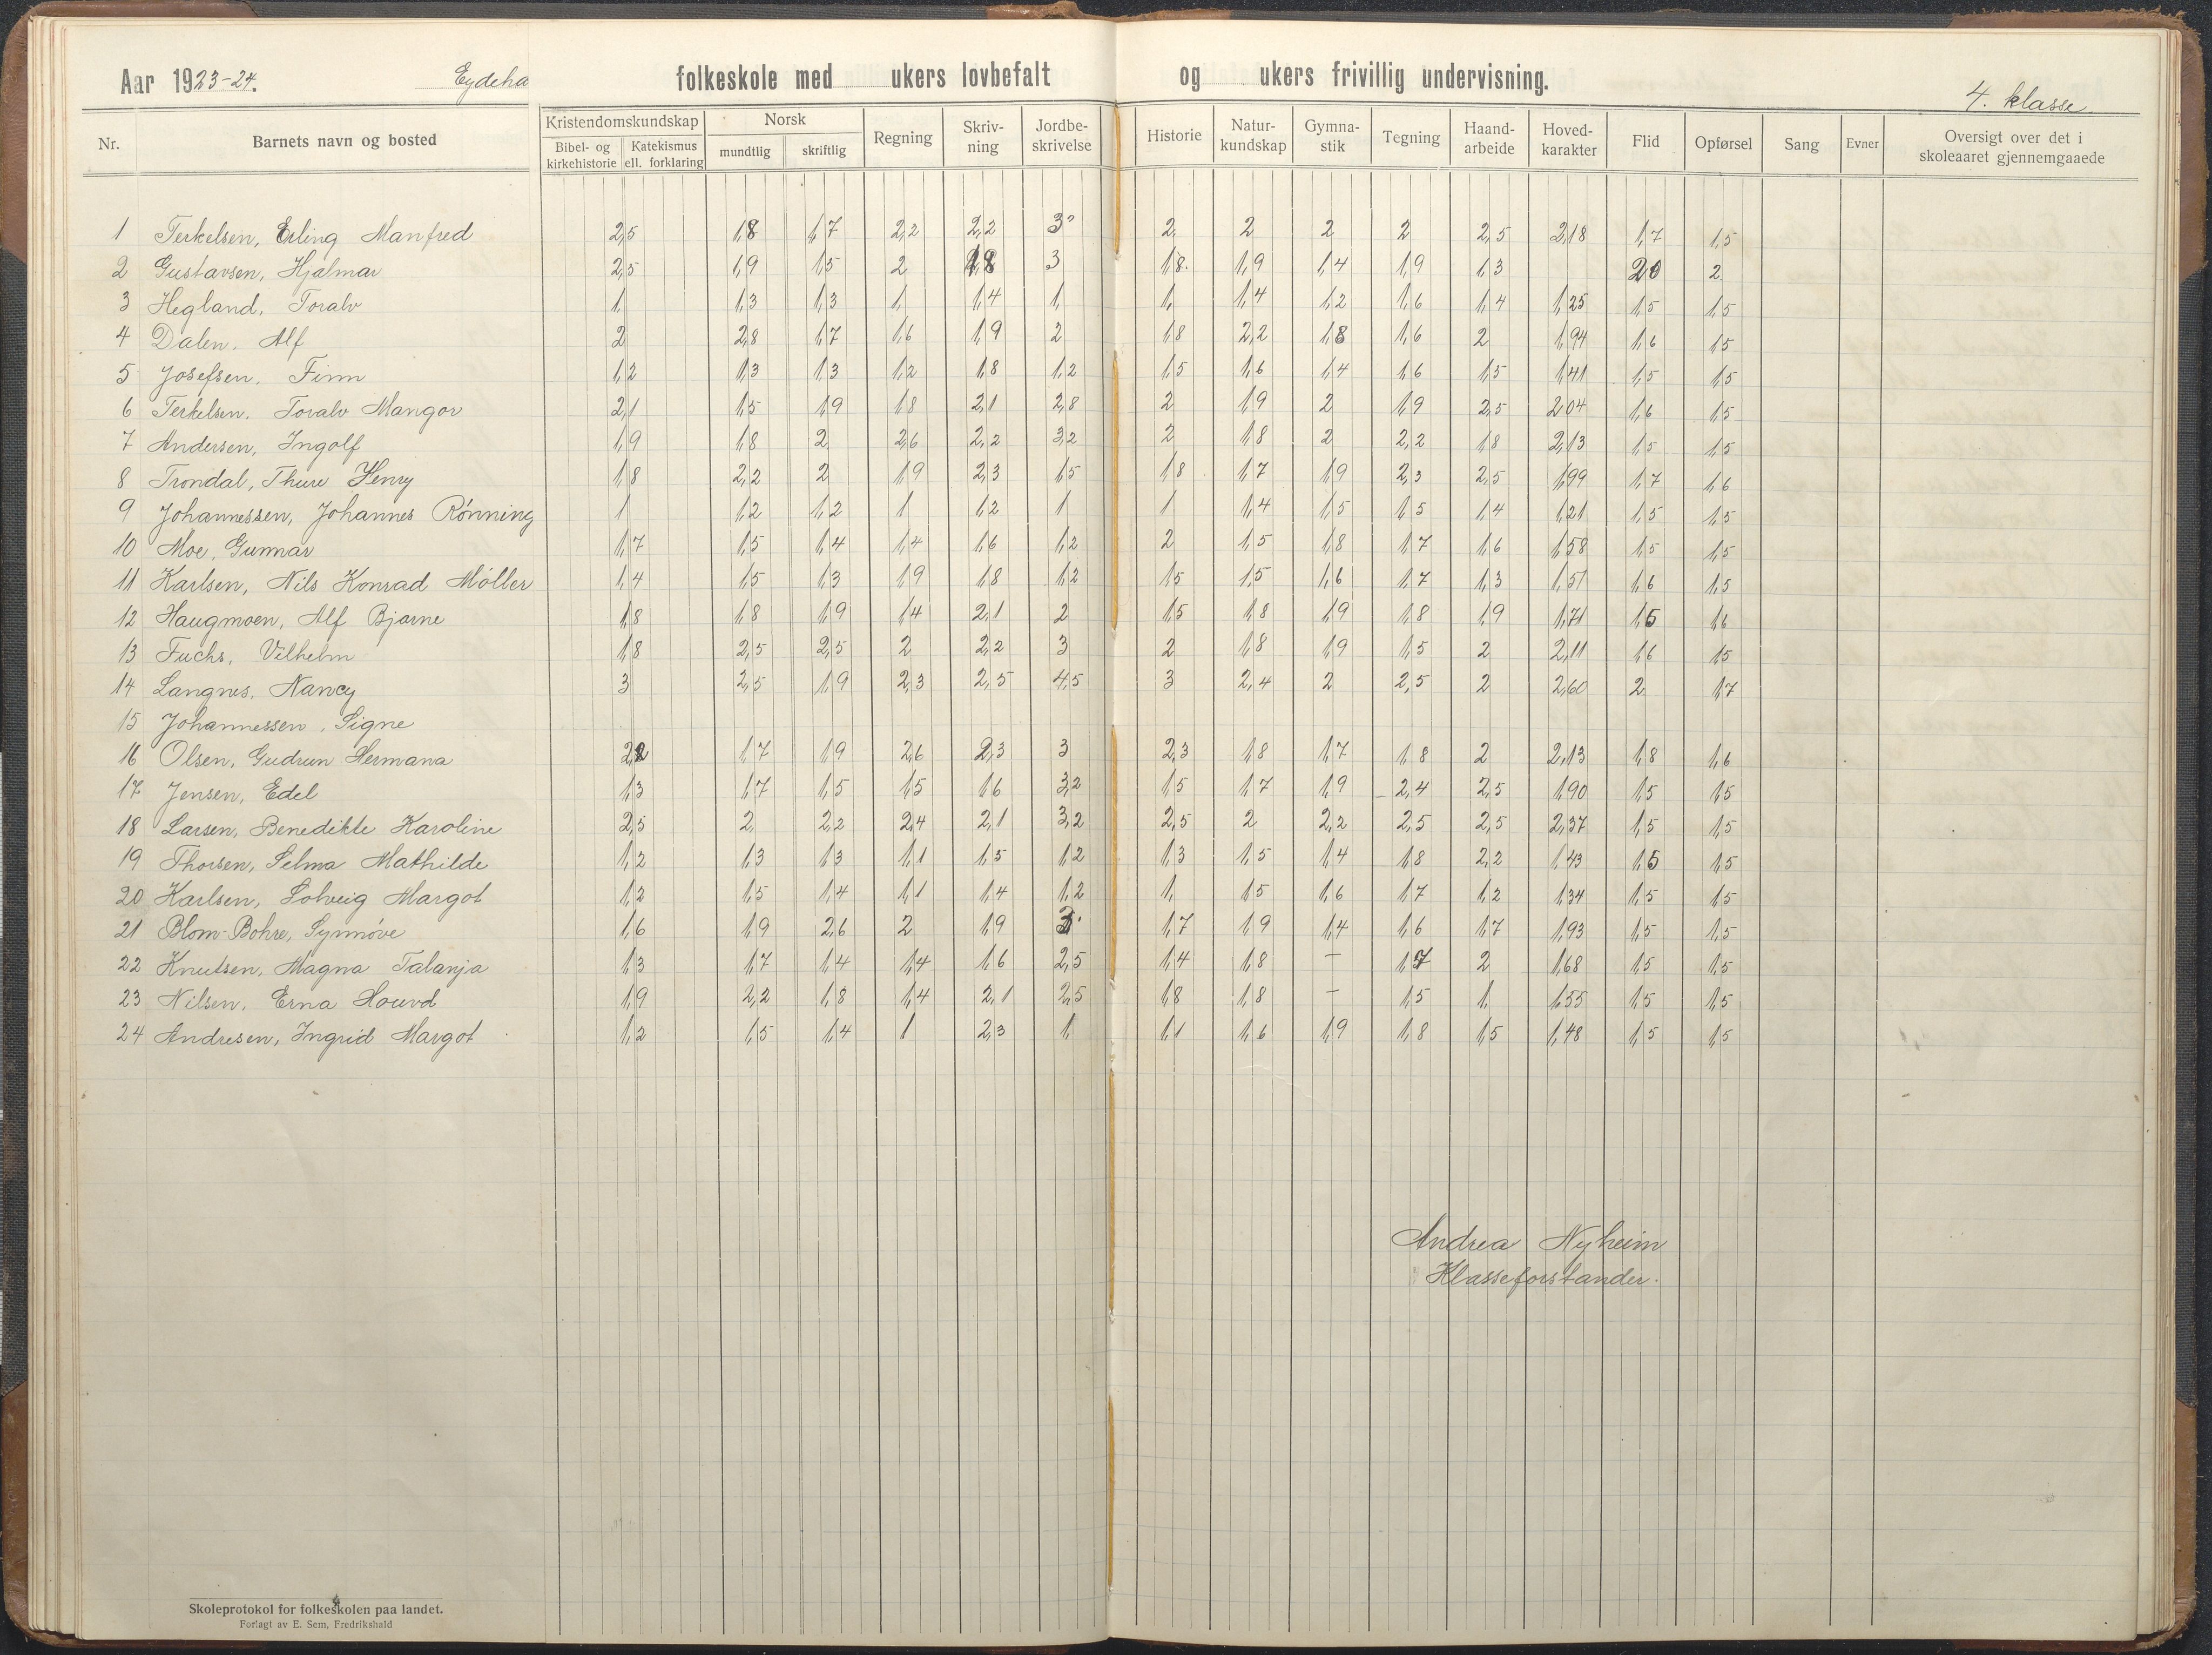 Aar 1923-24. Eydeha folkeskole med ukers lovbefalt og ukers frivillig undervisning.
4. klasse.
Nr. Barnets navn og bosted Kristendomskundskap Bibel- og kirkehistorie Katekismus ell. forklaring Norsk mundtlig skriftlig Regning Skriv-ning Jordbe-skrivelse Historie Natur-kundskap Gymna-stik Tegning Haand-arbeide Hoved-karakter Flid Opførsel Sang Evner Oversigt over det i skoleaaret gjennemgaaede
1 Terkelsen, Erling Manfred 2,5 1,8 1,7 2,2 2,2 3 2 2 2 2 2,5 2,18 1,7 1,5
2 Gustavsen, Hjalmar 2,5 1,9 1,5 2 1,8 3 1,8 1,9 1,4 1,9 1,3 2,0 2
3 Hegland, Toralv 1 1,3 1,3 1 1,4 1 1 1,4 1,2 1,6 1,4 1,25 1,5 1,5
4 Dalen, Alf 2 2,8 1,7 1,6 1,9 2 1,8 2,2 1,8 1,6 2 1,94 1,6 1,5
5 Josefsen, Finn 1,2 1,3 1,3 1,2 1,8 1,2 1,5 1,6 1,4 1,6 1,5 1,41 1,5 1,5
6 Terkelsen, Toralv Mangor 2,1 1,5 1,9 1,8 2,1 2,8 2 1,9 2 1,9 2,5 2,04 1,6 1,5
7 Andersen, Ingolf 1,9 1,8 2 2,6 2,2 3,2 2 1,8 2 2,2 1,8 2,13 1,5 1,5
8 Trondal, Thure Henry 1,8 2,2 2 1,9 2,3 1,5 1,8 1,7 1,9 2,3 2,5 1,99 1,7 1,6
9 Johannessen, Johannes Rønning 1 1,2 1,2 1 1,2 1 1 1,4 1,5 1,5 1,4 1,21 1,5 1,5
10 Moe, Gunnar 1,7 1,5 1,4 1,4 1,6 1,2 2 1,5 1,8 1,7 1,6 1,58 1,5 1,5
11 Karlsen, Nils Konrad Møller 1,4 1,5 1,3 1,9 1,8 1,2 1,5 1,5 1,6 1,7 1,3 1,51 1,6 1,5
12 Haugmoen, Alf Bjarne 1,8 1,8 1,9 1,4 2,1 2 1,5 1,8 1,9 1,8 1,9 1,71 1,5 1,6
13 Fuchs, Vilhelm 1,8 2,5 2,5 2 2,2 3 2 1,8 1,9 1,5 2 2,11 1,6 1,5
14 Langnes, Nancy 3 2,5 1,9 2,3 2,5 4,5 3 2,4 2 2,5 2 2,60 2 1,7
15 Johannessen, Signe
16 Olsen, Gudrun Hermana 2,2 1,7 1,9 2,6 2,3 3 2,3 1,8 1,7 1,8 2 2,13 1,8 1,6
17 Jensen, Edel 1,3 1,7 1,5 1,5 1,6 3,2 1,5 1,7 1,9 2,4 2,5 1,90 1,5 1,5
18 Larsen, Benedikte Karoline 2,5 2 2,2 2,4 2,1 3,2 2,5 2 2,2 2,5 2,5 2,37 1,5 1,5
19 Thorsen, Selma Mathilde 1,2 1,3 1,3 1,1 1,5 1,2 1,3 1,5 1,4 1,8 2,2 1,43 1,5 1,5
20 Karlsen, Solveig Margot 1,2 1,5 1,4 1,1 1,4 1,2 1 1,5 1,6 1,7 1,2 1,34 1,5 1,5
21 Blom-Bohre, Synnøve 1,6 1,9 2,6 2 1,9 1,7 1,9 1,4 1,6 1,7 1,93 1,5 1,5
22 Knutsen, Magna Talanja 1,3 1,7 1,4 1,4 1,6 2,5 1,4 1,8 - 1,7 2 1,68 1,5 1,5
23 Nilsen, Erna Houvd 1,9 2,2 1,8 1,4 2,1 2,5 1,8 1,8 - 1,5 1 1,55 1,5 1,5
24 Andresen, Ingrid Margot 1,2 1,5 1,4 1 2,3 1 1,1 1,6 1,9 1,8 1,5 1,48 1,5 1,5
Andrea Nyheim
Klasseforstander.
Skoleprotokol for folkeskolen paa landet.
Forlagt av E. Sem, Fredrikshald